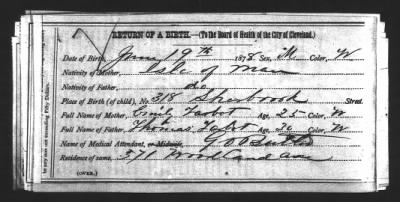 RETURN OF A BIRTH.—(To the Board of Health of the City of Cleveland.)
Date of Birth, June 19th 1878 Sex, M Color, W
Nativity of Mother, Isle of Man
Nativity of Father, do
Place of Birth (of child), No. 318 Sherbrook Street.
Full Name of Mother, Emily Age, 25 Color, W
Full Name of Father, Thomas Age, 30 Color, W
Name of Medical Attendant, or Midwife,
Residence of same, 571 Woodland ave
(OVER.)